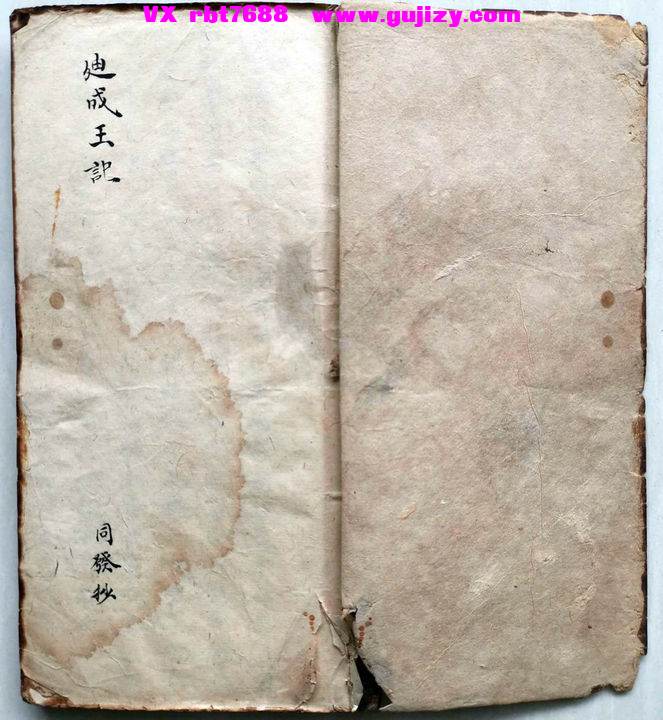 VX rbt7688 www.gujizy.com
廸成王記
同發抄